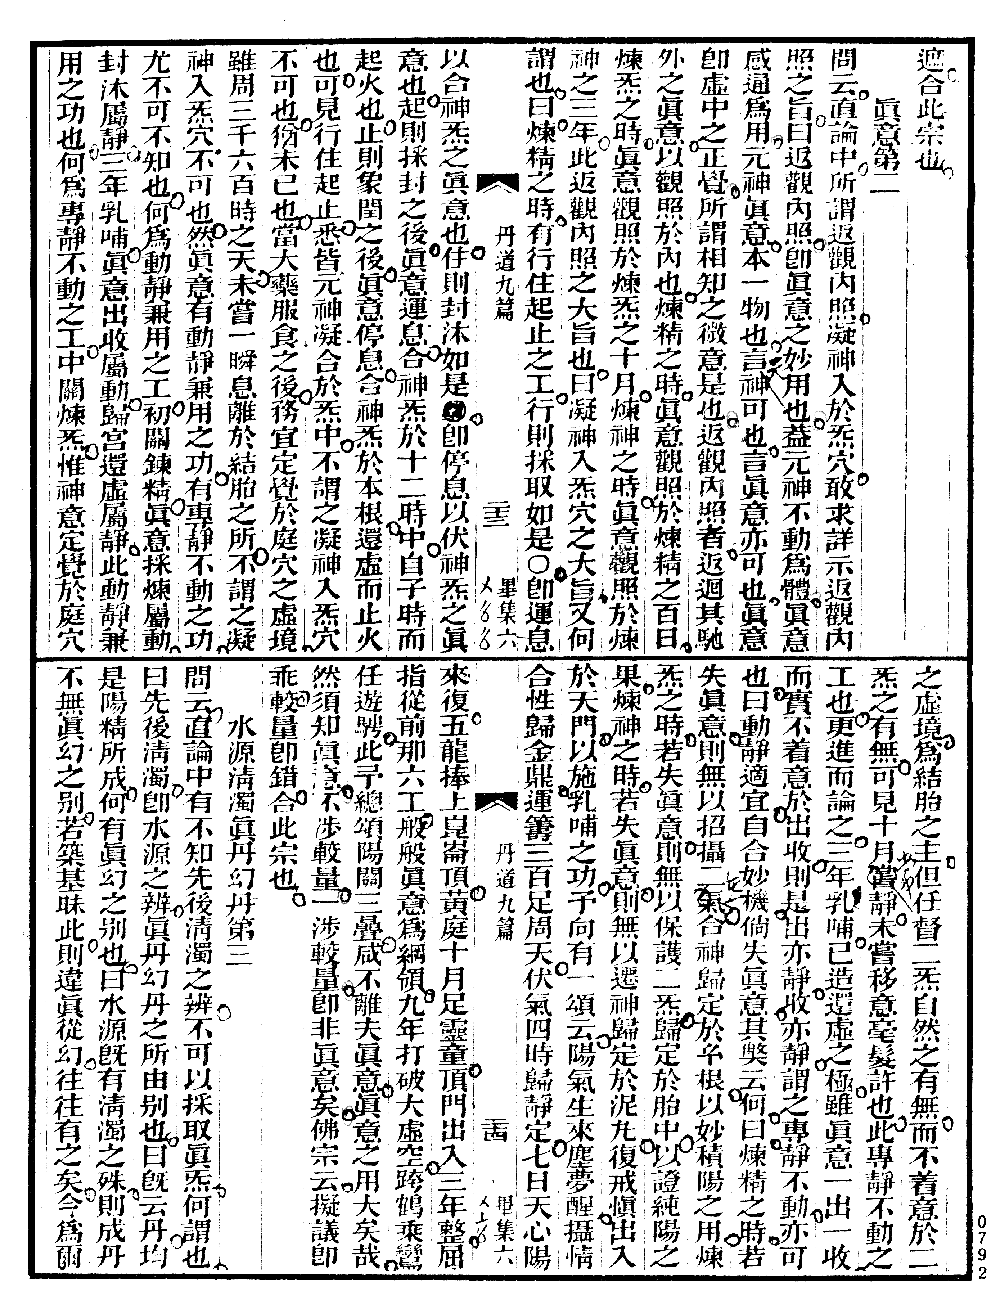 適合此宗也
眞意第二
問云直論中所謂返觀內照凝神入於炁穴敢求詳示返觀內
照之旨曰返觀內照卽眞意之妙用也蓋元神不動爲體眞意
感通爲用元神眞意本一物也言神可也言眞意亦可也眞意
卽虛中之正覺所謂相知之微意是也返觀內照者返迴其馳
外之眞意以觀照於內也煉精之時眞意觀照於煉精之百日
煉炁之時眞意觀照於煉炁之十月煉神之時眞意觀照於煉
神之三年此返觀內照之大旨也曰凝神入炁穴之大旨又何
謂也曰煉精之時有行住起止之工行則採取如是〇卽運息
丹道九篇
二十三
畢集六
以合神炁之眞意也住則封沐如是卽停息以伏神炁之眞
意也起則採封之後眞意運息合神炁於十二時中自子時而
起火也止則象閏之後眞意停息合神炁於本根還虛而止火
也可見行住起止悉皆元神凝合於炁中不謂之凝神入炁穴
不可也份未已也當大藥服食之後務宜定覺於庭穴之虛境
雖周三千六百時之天未嘗一瞬息離於結胎之所不謂之凝
神入炁穴不可也然眞意有動靜兼用之功有專靜不動之功
尤不可不知也何爲動靜兼用之工初關鍊精眞意採煉屬動
封沐屬靜三年乳哺眞意出收屬動歸宮還虛屬靜此動靜兼
用之功也何爲專靜不動之工中關煉炁惟神意定覺於庭穴
之虛境爲結胎之主但任督二炁自然之有無而不着意於二
炁之有無可見十月嘗靜未嘗移意毫髮許也此專靜不動之
工也更進而論之三年乳哺已造還虛之極雖眞意一出一收
而實不着意於出收則是出亦靜收亦靜謂之專靜不動亦可
也曰動靜適宜自合妙機倘失眞意其獘云何曰煉精之時若
失眞意則無以招攝二氣合神歸定於玄根以妙積陽之用煉
炁之時若失眞意則無以保護二炁歸定於胎中以證純陽之
果煉神之時若失眞意則無以遷神歸定於泥丸復戒愼出入
於天門以施乳哺之功予向有一頌云陽氣生來塵夢醒攝情
合性歸金鼎運籌三百足周天伏氣四時歸靜定七日天心陽
丹道九篇
二十四
畢集六
來復五龍捧上崑崙頂黃庭十月足靈童頂門出入三年整屈
指從前那六工般般眞意爲綱領九年打破大虛空跨鶴乘鸞
任遊騁此予總頌陽關三疊咸不離夫眞意眞意之用大矣哉
然須知眞意不涉較量一涉較量卽非眞意矣佛宗云擬議卽
乖較量卽錯合此宗也
水源淸濁眞丹幻丹第三
問云直論中有不知先後淸濁之辨不可以採取眞炁何謂也
曰先後淸濁卽水源之辨眞丹幻丹之所由別也曰旣云丹均
是陽精所成何有眞幻之別也曰水源旣有淸濁之殊則成丹
不無眞幻之別若築基昧此則違眞從幻往往有之矣今爲爾
0792